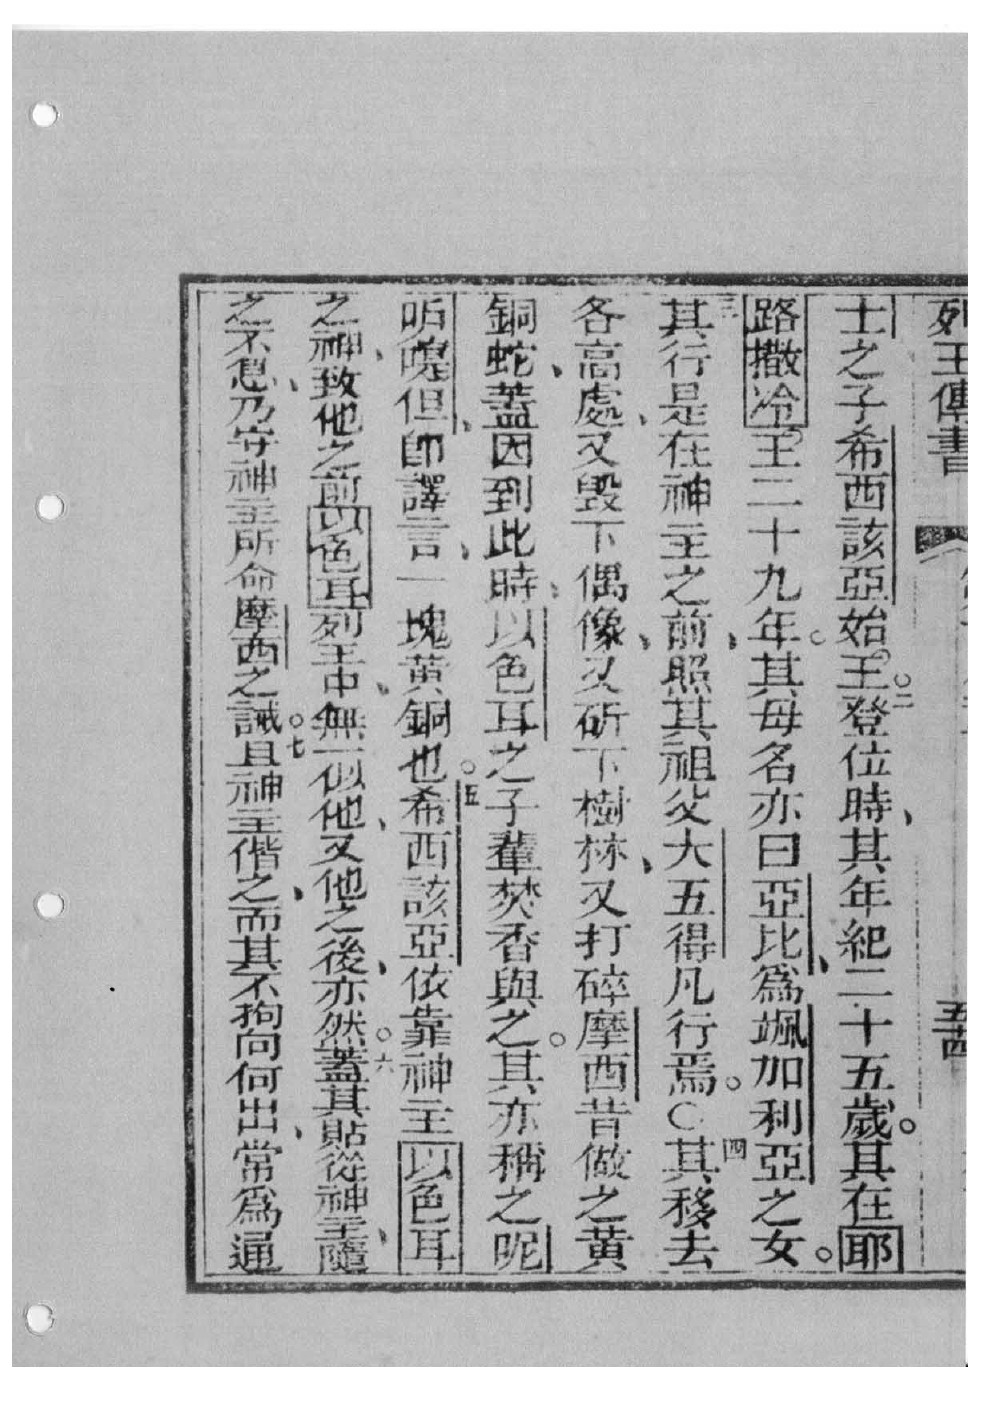 列王傳書 五十四
士之子希西該亞始王。○二王登位時、其年紀二十五歲。其在耶
路撒冷王二十九年。其母名亦曰亞比、爲颯加利亞之女。
三其行是在神主之前、照其祖父大五得凡行焉。○四其移去
各高處、又毀下偶像、又斫下樹林、又打碎摩西昔做之黃
銅蛇、蓋因到此時、以色耳之子輩焚香與之。其亦稱之呢
呍嘰但、卽譯言、一塊黃銅也。○五希西該亞依靠神主以色耳
之神、致他之前以色耳列王中、無一似他、又他之後、亦然。○六蓋其貼從神主、隨
之不息、乃守神主所命摩西之誡。○七且神主偕之、而其不拘向何出、常爲通